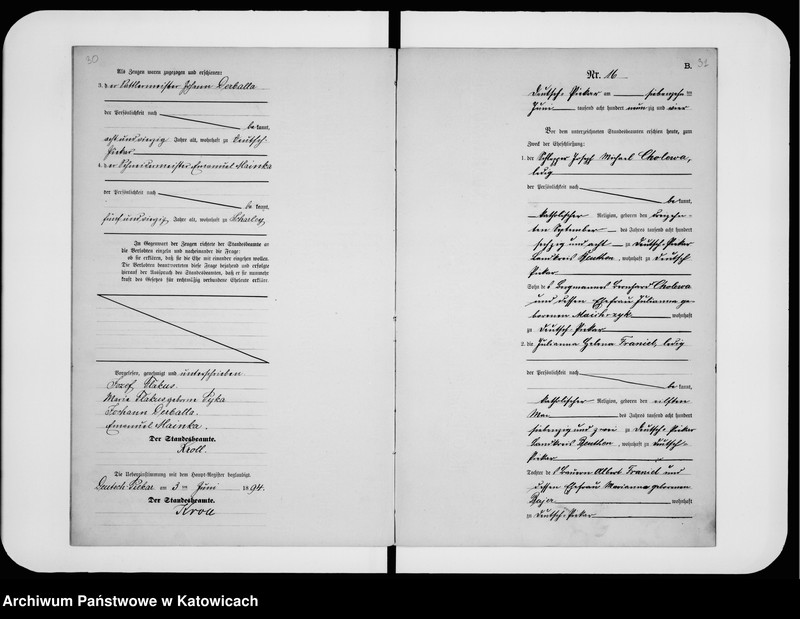 30
Als Zeugen waren zugezogen und erschienen:
3. der Sattlermeister Johann Derballa
der Persönlichkeit nach
be kannt,
acht und vierzig Jahre alt, wohnhaft zu Deutsch-
Piekar
4. der Schneidermeister Emanuel Hainka
der Persönlichkeit nach
be kannt,
fünf und vierzig Jahre alt, wohnhaft zu Scharley.
In Gegenwart der Zeugen richtete der Standesbeamte an
die Verlobten einzeln und nacheinander die Frage:
ob sie erklären, daß sie die Ehe mit einander eingehen wollen.
Die Verlobten beantworteten diese Frage bejahend und erfolgte
hierauf der Ausspruch des Standesbeamten, daß er sie nunmehr
kraft des Gesetzes für rechtmäßig verbundene Eheleute erkläre.
Vorgelesen, genehmigt und unterschrieben
Josef
Marie geborne
Johann Derballa.
Emanuel Hainka.
Der Standesbeamte.
Kroll.
Die Uebereinstimmung mit dem Haupt-Register beglaubigt.
Deutsch Piekar am 3 ten Juni 1894.
Der Standesbeamte.
Kroll
B. 31
Nr. 16
Deutsch-Piekar am siebenzehn ten
Juni tausend acht hundert neun zig und vier
Vor dem unterzeichneten Standesbeamten erschien heute, zum
Zweck der Eheschließung:
1. der Schlepper Joseph Michael Cholewa,
ledig
der Persönlichkeit nach
be kannt,
katholischer Religion, geboren den
ten September des Jahres tausend acht hundert
sechzig und acht zu Deutsch-Piekar
Landkreis Beuthen, wohnhaft zu Deutsch-
Piekar
Sohn des Bergmannes Bernhard Cholewa
und dessen Ehefrau Julianna ge-
borenen wohnhaft
zu Deutsch-Piekar
2. die Julianna Helena Franiel, ledig
der Persönlichkeit nach
be kannt,
katholischer Religion, geboren den elften
Mai des Jahres tausend acht hundert
siebenzig und zwei zu Deutsch-Piekar
Landkreis Beuthen, wohnhaft zu Deutsch-
Piekar
Tochter des Bauern Albert Franiel und
dessen Ehefrau Marianna geborenen
wohnhaft
zu Deutsch-Piekar
Archiwum Państwowe w Katowicach